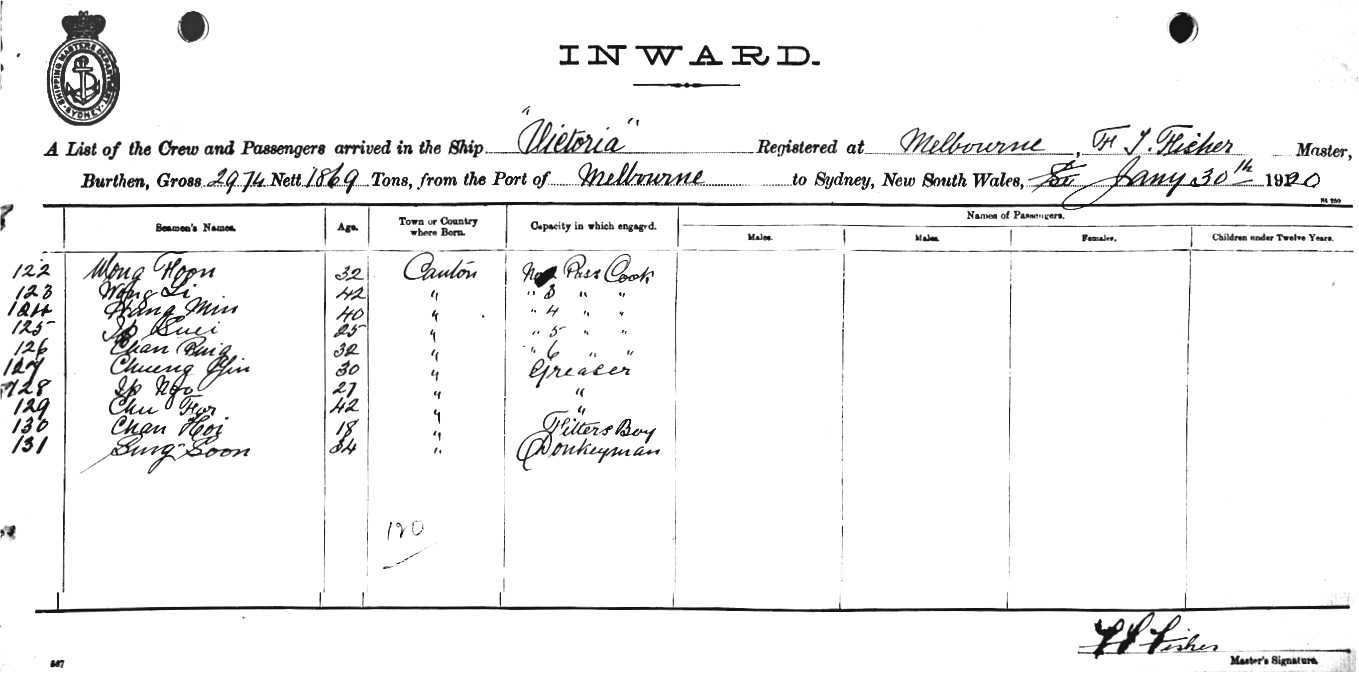 SHIPPING MASTERS DEPARTMENT SYDNEY
INWARD.
A List of the Crew and Passengers arrived in the Ship "Victoria" Registered at Melbourne, F J. Fisher Master,
Burthen, Gross 2974 Nett 1869 Tons, from the Port of Melbourne to Sydney, New South Wales, Jany 30th 1920
Names of Passengers.
Seamen's Names. Age. Town or Country where Born. Capacity in which engaged. Males. Males. Females. Children under Twelve Years.
122 Wong Hoon 32 Canton No 2 Pass Cook
123 Wong Li 42 " " 3 " "
124 Wang Min 40 " " 4 " "
125 Ip 25 " " 5 " "
126 Chan 32 " " 6 " "
127 Chueng Yin 30 " Greaser
128 Ip Ngo 27 " "
129 Chu For 42 " "
130 Chan Hoi 18 " Fitters Boy
131 Sung Soon 34 " Donkeyman
120
F J Fisher
Master's Signature.
567